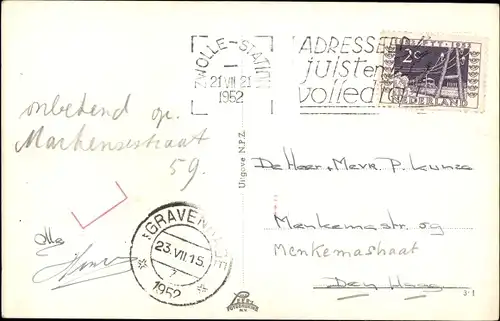 ZWOLLE-STATION
21 VII 21
1952
ADRESSEER
juist en
volledig
2c
NEDERLAND
onbekend op
Markensestraat
59.
Uitgave N.P.Z.
De Heer + Mevr. P. Kunze
Menkemastr. 59
Menkemastraat
Den Haag
'sGRAVENHAGE
23.VII.15
7
1952
3:1